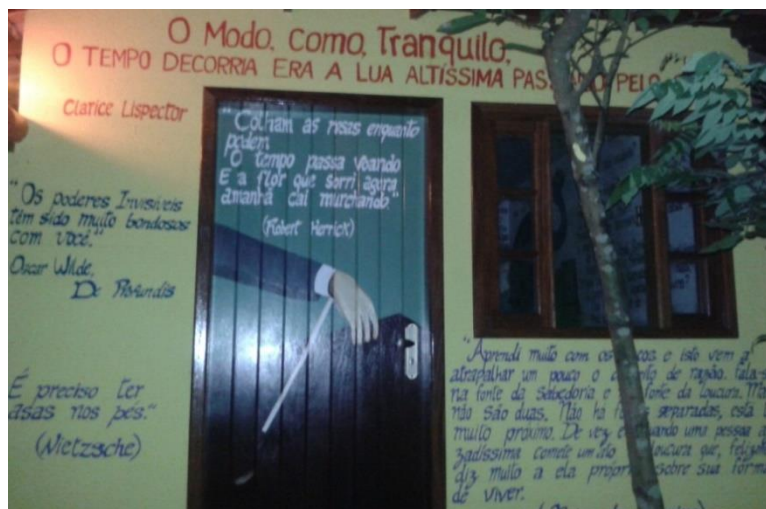 O Modo, Como, Tranquilo,
O TEMPO DECORRIA ERA A LUA ALTÍSSIMA PASSANDO PELO
Clarice Lispector
"Colham as rosas enquanto
podem
O tempo passa voando
E a flor que sorri agora
amanhã cai murchando"
(Robert Herrick)
"Os poderes Invisíveis
têm sido muito bondosos
com você."
Oscar Wilde,
De Profundis
É preciso ter
asas nos pés."
(Nietzsche)
"Aprendi muito com os e isto vem a
atrapalhar um pouco o de razão.
na fonte da sabedoria e fonte da loucura.
não são duas. Não há separadas, esta
muito próximo. De vez quando uma pessoa
comete um ato loucura que,
diz muito a ela sobre sua forma
de viver.